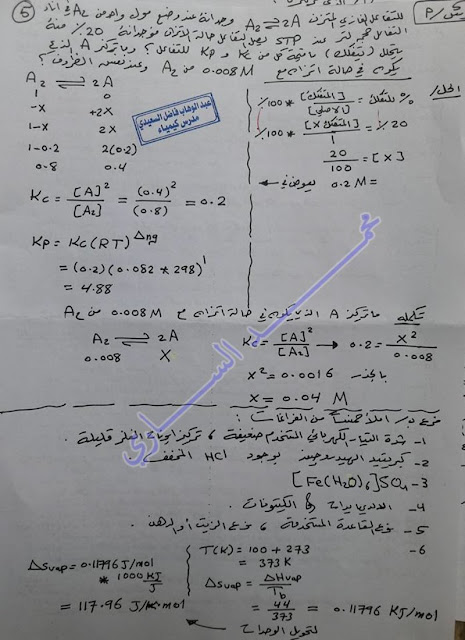 س٢/ P
⑤
للتفاعل الغازي المتزن A₂ ⇌ 2A وجد انه عند وضع مول واحد من A₂ في اناء
التفاعل حجمه لتر عند STP يصل التفاعل حالة التوازن فوجد انه 20٪ منه
يتحلل (يتفكك) ما قيمة كل من Kc و Kp للتفاعل؟ وما تركيز A الذي
يكون في حالة اتزان مع 0.008M من A₂ وعند نفس الظروف؟
الحل/
A₂ ⇌ 2A
1 0
-X +2X
1-X 2X
1-0.2 2(0.2)
0.8 0.4
عبد الوهاب فاضل السعيدي
مدرس كيمياء
٪ للتفكك = [المتفكك] / [الاصلي] * 100٪
20٪ = [X المتفكك] / 1 * 100٪
20 / 100 = [X]
= 0.2 M يعوض في
Kc = [A]² / [A₂] = (0.4)² / (0.8) = 0.2
Kp = Kc (RT)^Δng
= (0.2)(0.082 * 298)¹
= 4.88
محمد الساري
تكملة ما تركيز A الذي يكون في حالة اتزان مع 0.008 M من A₂
A₂ ⇌ 2A
0.008 X
Kc = [A]² / [A₂] → 0.2 = X² / 0.008
X² = 0.0016 بالجذر
X = 0.04 M
فرع B/ املأ خمساً من الفراغات:
1- شدة التيار الكهربائي المستخدم ضعيفة، تركيز ايونات الفلز قليلة.
2- كبريتيد الهيدروجين بوجود HCl المخفف.
3- [Fe(H₂O)₆]SO₄
4- الالديهايدات و الكيتونات.
5- نوع القاعدة المستخدمة، نوع الزيت أو الدهن.
6-
T(K) = 100 + 273
= 373 K
ΔSvap = ΔHvap / Tb
= 44 / 373 = 0.11796 KJ/mol
ΔSvap = 0.11796 J/mol
* 1000 KJ/J
= 117.96 J/K.mol
لتحويل الوحدات